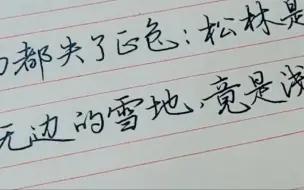 都失了正色：松林是
无边的雪地，竟是浅